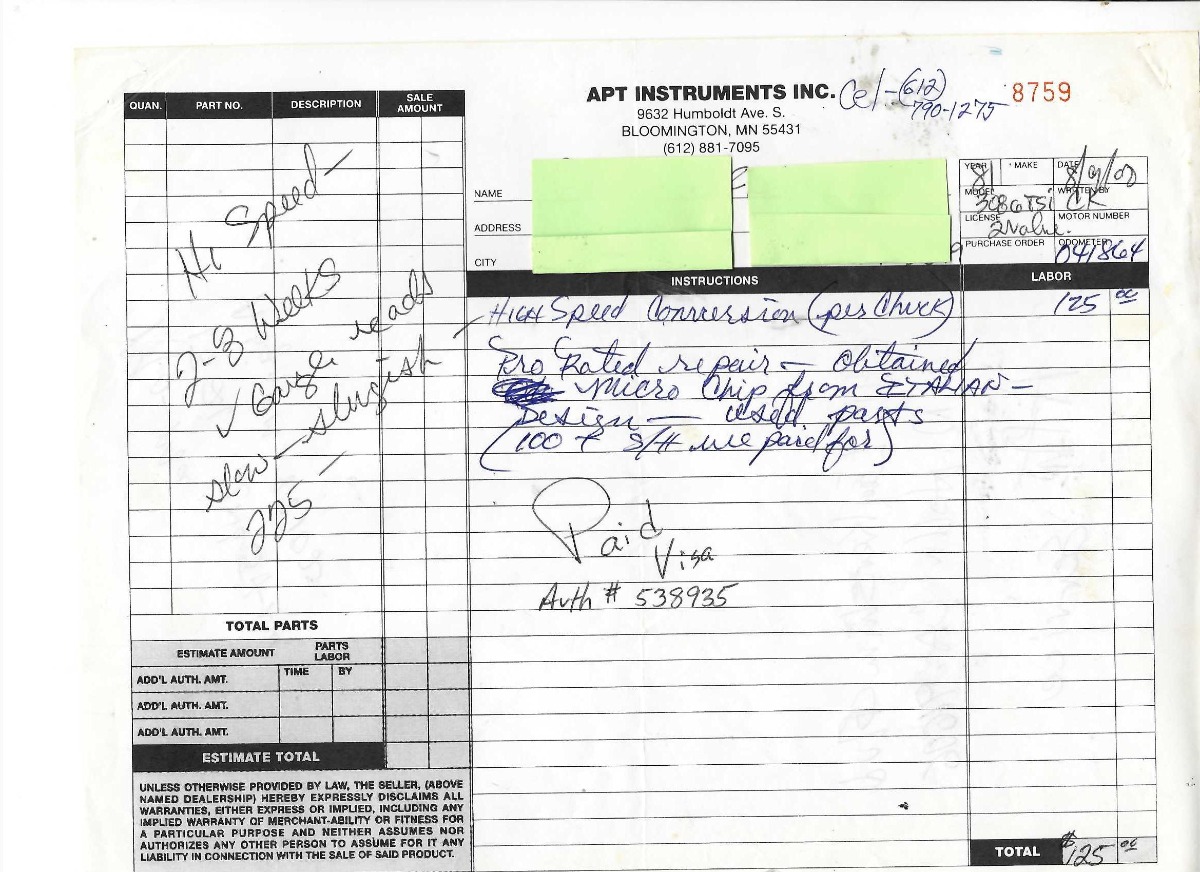 APT INSTRUMENTS INC.
Cel-(612)
790-1275
8759
9632 Humboldt Ave. S.
BLOOMINGTON, MN 55431
(612) 881-7095
QUAN. PART NO. DESCRIPTION SALE AMOUNT
NAME
ADDRESS
CITY
YEAR 81 MAKE DATE
MODEL 308GTSi WRITTEN BY CK
LICENSE 2Valve. MOTOR NUMBER
PURCHASE ORDER ODOMETER 041864
INSTRUCTIONS LABOR
HIGH Speed Conversion (per Chuck) 125 00
Pro Rated repair - Obtained
Micro Chip from ITALIAN-
Design - used parts
(100 + S/H we paid for)
Paid
Visa
Auth # 538935
Hi Speed-
2-3 Weeks
✓ Gauge reads
slow - slugish -
225 -
TOTAL PARTS
ESTIMATE AMOUNT PARTS LABOR
ADD'L AUTH. AMT. TIME BY
ADD'L AUTH. AMT.
ADD'L AUTH. AMT.
ESTIMATE TOTAL
UNLESS OTHERWISE PROVIDED BY LAW, THE SELLER, (ABOVE
NAMED DEALERSHIP) HEREBY EXPRESSLY DISCLAIMS ALL
WARRANTIES, EITHER EXPRESS OR IMPLIED, INCLUDING ANY
IMPLIED WARRANTY OF MERCHANT-ABILITY OR FITNESS FOR
A PARTICULAR PURPOSE AND NEITHER ASSUMES NOR
AUTHORIZES ANY OTHER PERSON TO ASSUME FOR IT ANY
LIABILITY IN CONNECTION WITH THE SALE OF SAID PRODUCT.
TOTAL $125 00